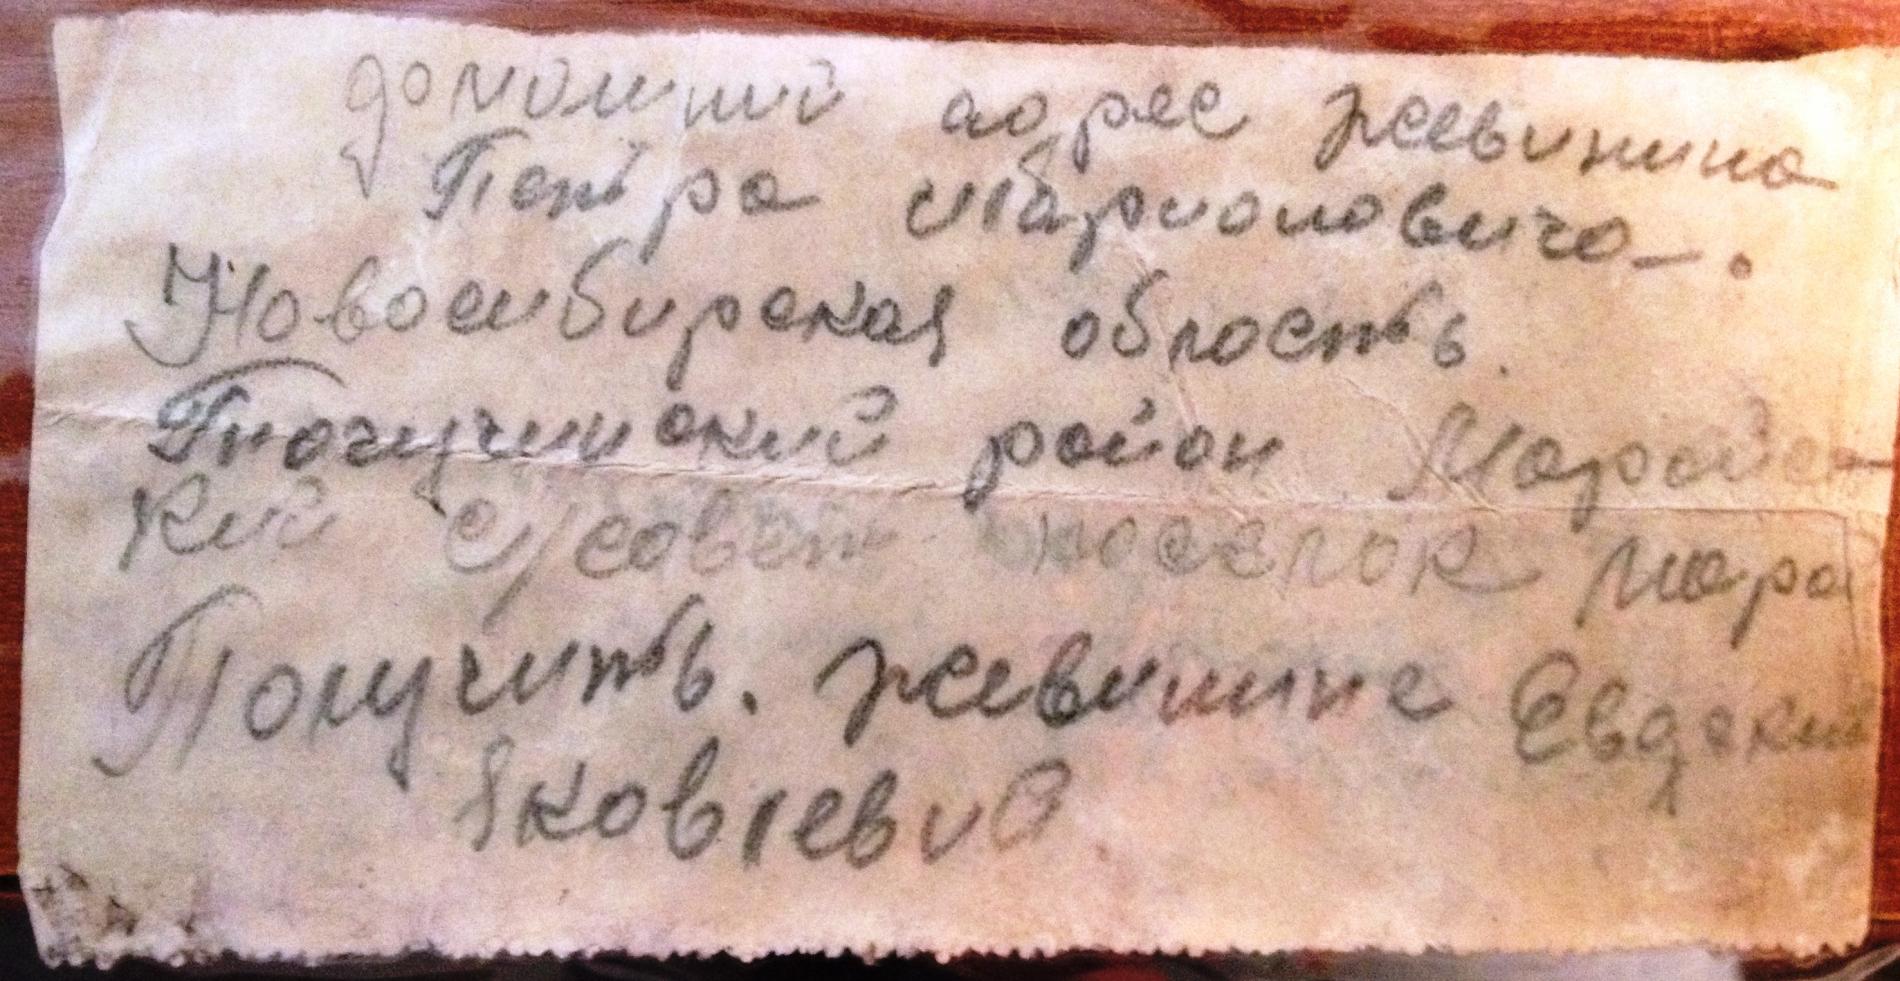 домошний адрес жеевинина
Петра Иларионовича.
Новосибирская область.
Тогучинский район Марайс-
кий с/совет поселок Мара
Получить. жеевинине Евдоким
Яковлевив